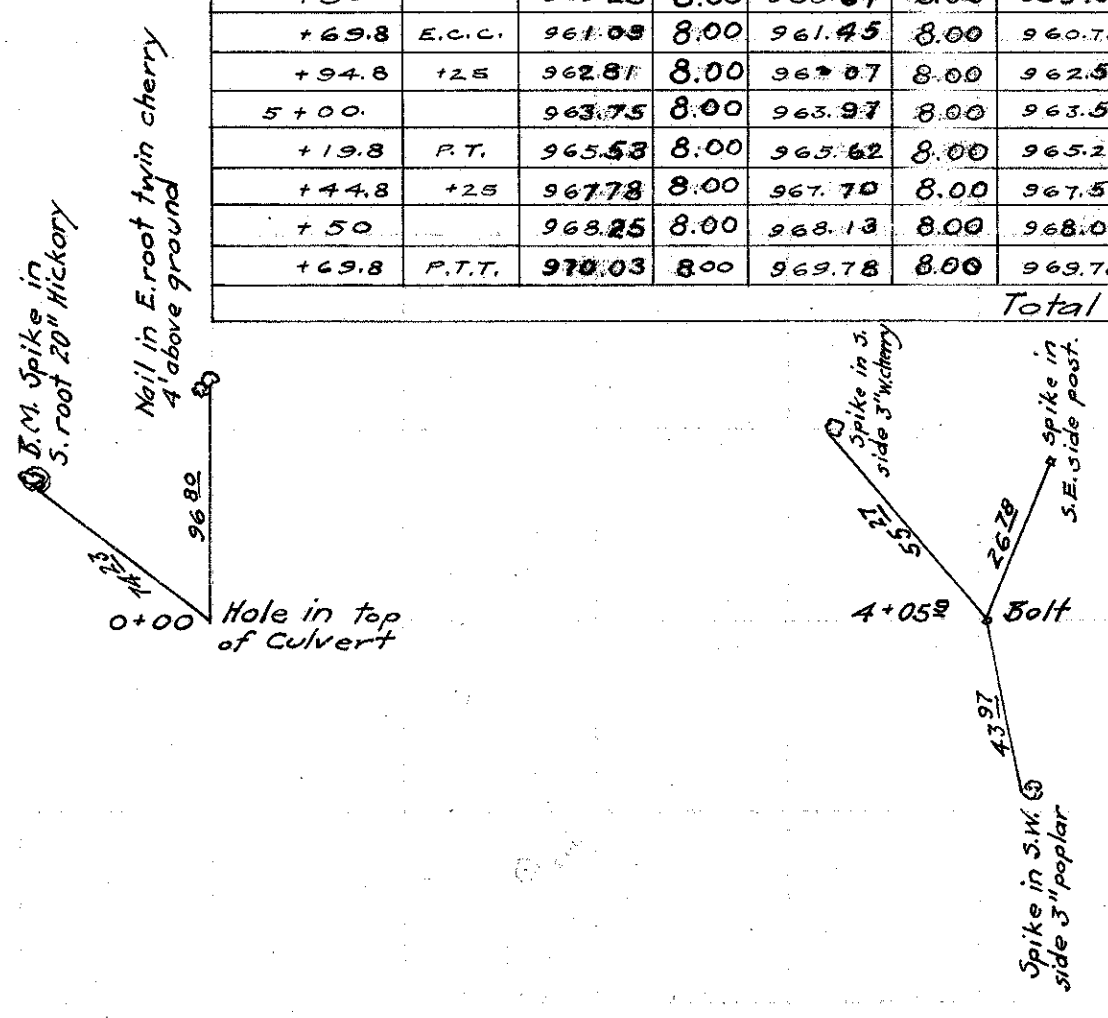 +69.8 E.C.C. 961.09 8.00 961.45 8.00 960.7
+94.8 +25 962.81 8.00 07 8.00 962.5
5+00. 963.75 8.00 963.97 8.00 963.5
+19.8 P.T. 965.53 8.00 965.62 8.00 965.2
+44.8 +25 967.78 8.00 967.70 8.00 967.5
+50 968.25 8.00 968.13 8.00 968.0
+69.8 P.T.T. 970.03 8.00 969.78 8.00 969.7
Total
B.M. Spike in
S. root 20" Hickory
Nail in E. root twin cherry
4' above ground
96 80
14 23
0+00
Hole in top
of Culvert
Spike in S.
side 3" w.cherry
Spike in
S.E. side post.
55 27
26 78
4+05
Bolt
43 97
Spike in S.W.
side 3" poplar